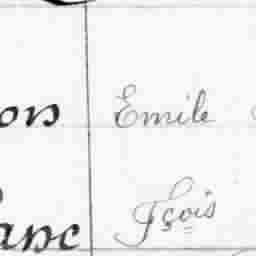 ons Emile
anc Fçois